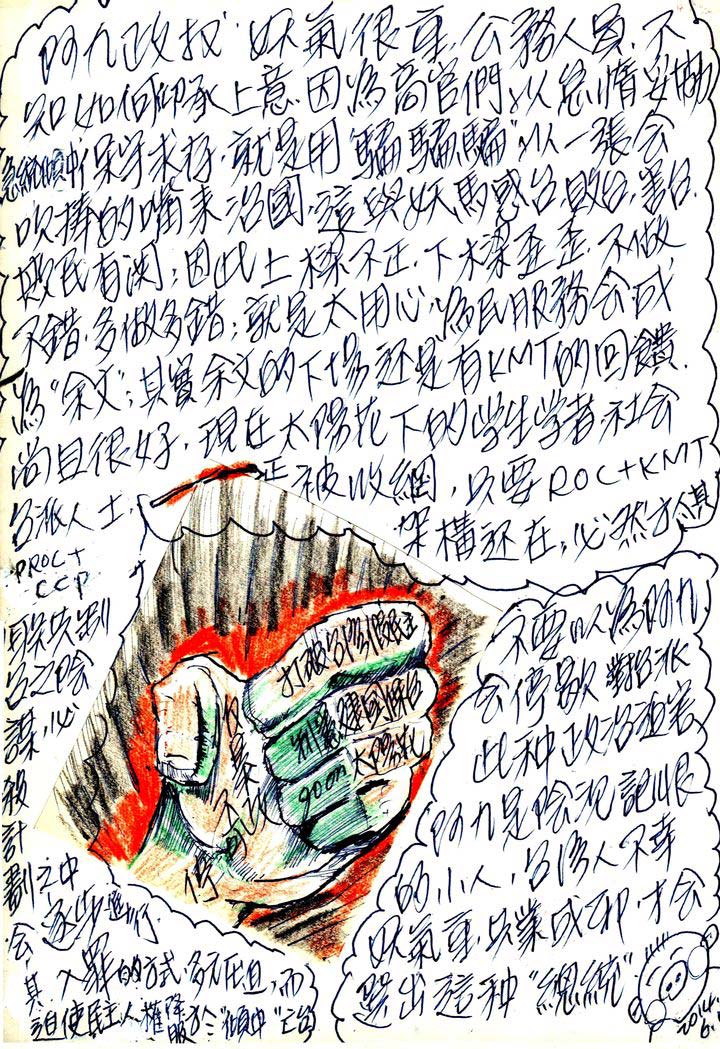 阿九政权"妖氣很重，公務人員，不
知如何仰承上意，因為高官們以怠惰妥協
急統傾中保守求存，就是用"騙騙騙"以一張会
吹捧的嘴來治國，這與妖馬惑台，敗台，害台，
有関；因此上樑不正，下樑歪歪，不做
不錯，多做多錯；就是太用心，為民服務会成
為"余文"；其實余文的下場还是有KMT的回饋
尚且很好，現在太陽花下的学生学者，社会
正被收網，只要ROC+KMT
台派人士，
架構还在，必然
PROC+
CCP
台之陰
謀，必
殺計
劃之中
会逐步進行，
其入罪的方式，多在且，而
迫使民主人權降服於"傾中"亡台
不要以為阿九
会停歇對台派
此种政治迫害
阿九是陰沉記恨
的小人，台湾人不幸
妖氣重，共業成形，才会
選出這种"總統"
打破台湾假民主
太陽花
goon
2014.
6.